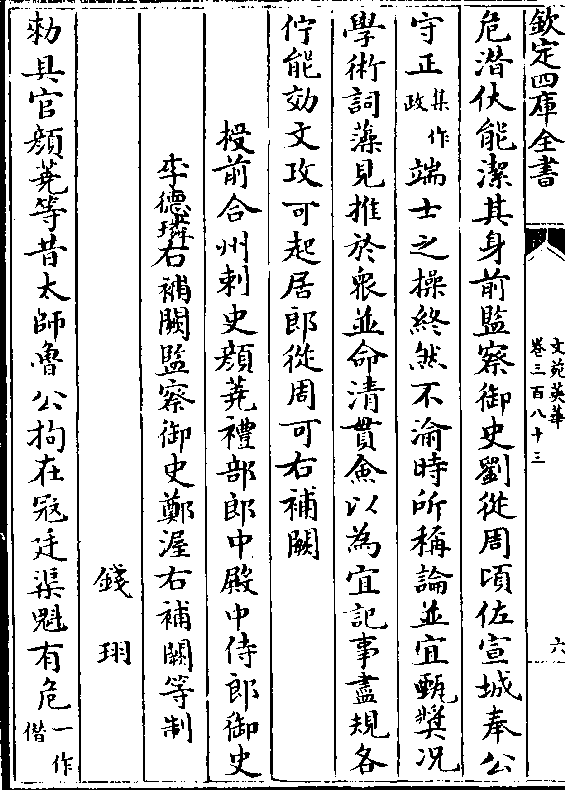 欽定四庫全書
文苑英華
卷三百八十三
六
危潛伏能潔其身前監察御史劉從周頃佐宣城奉公
守正集作政端士之操終然不渝時所稱論並宜甄奨况
學術詞藻見推於衆並命清貫僉以為宜記事盡規各
佇能効文攻可起居郎從周可右補闕
授前合州刺史顔蕘禮部郎中殿中侍郎御史
李德璘右補闕監察御史鄭渥右補闕等制
錢珝
勅具官顔蕘等昔太師魯公拘在冦廷渠魁有危一作偕